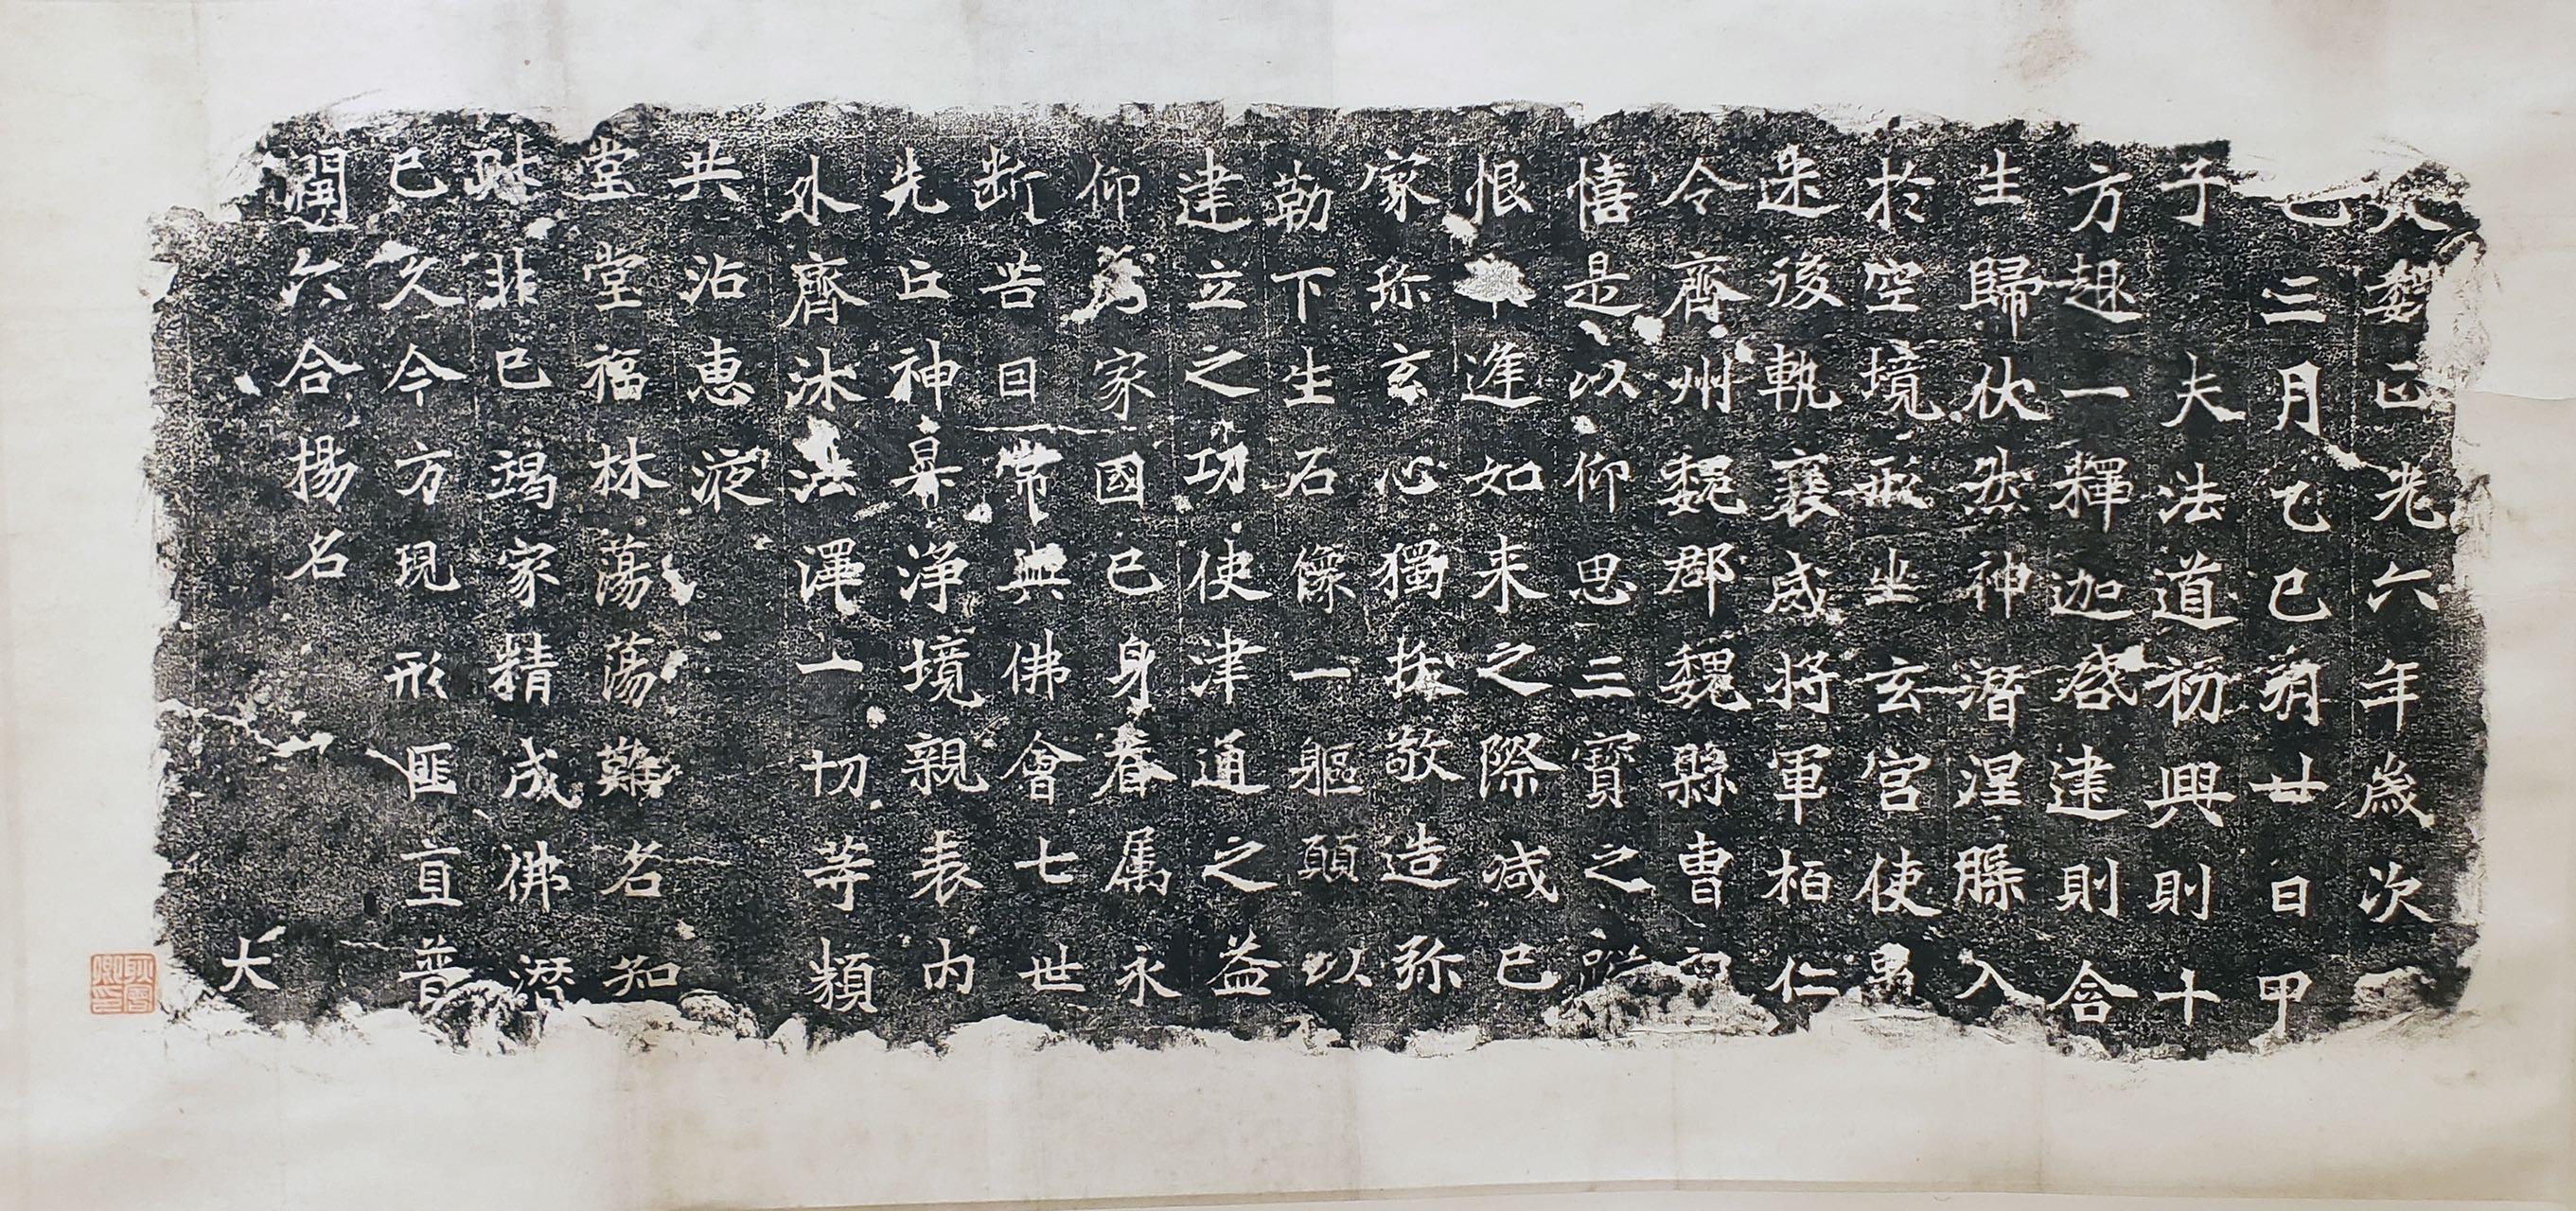 大魏正光六年歲次
乙三月乙巳朔廿日甲
子夫法道初興則十
方趣一釋迦啓建則含
生歸伏然神潛涅槃入
於空境形坐玄宮使愚
迷後軌襄威將軍栢仁
令齊州魏郡魏縣曹
憘是以仰思三寶之
恨未逢如来之際减已
家珎玄心獨拔敬造弥
勒下生石像一軀願以
建立之功使津通之益
仰為家國己身眷属永
断苦因常與佛會七世
先丘神昇浄境親表内
外齊沐法澤一切等類
共沾惠液
堂堂福林蕩蕩難名知
財非己竭家精成佛潜
已久今方現形匪直普
潤六合揚名
大